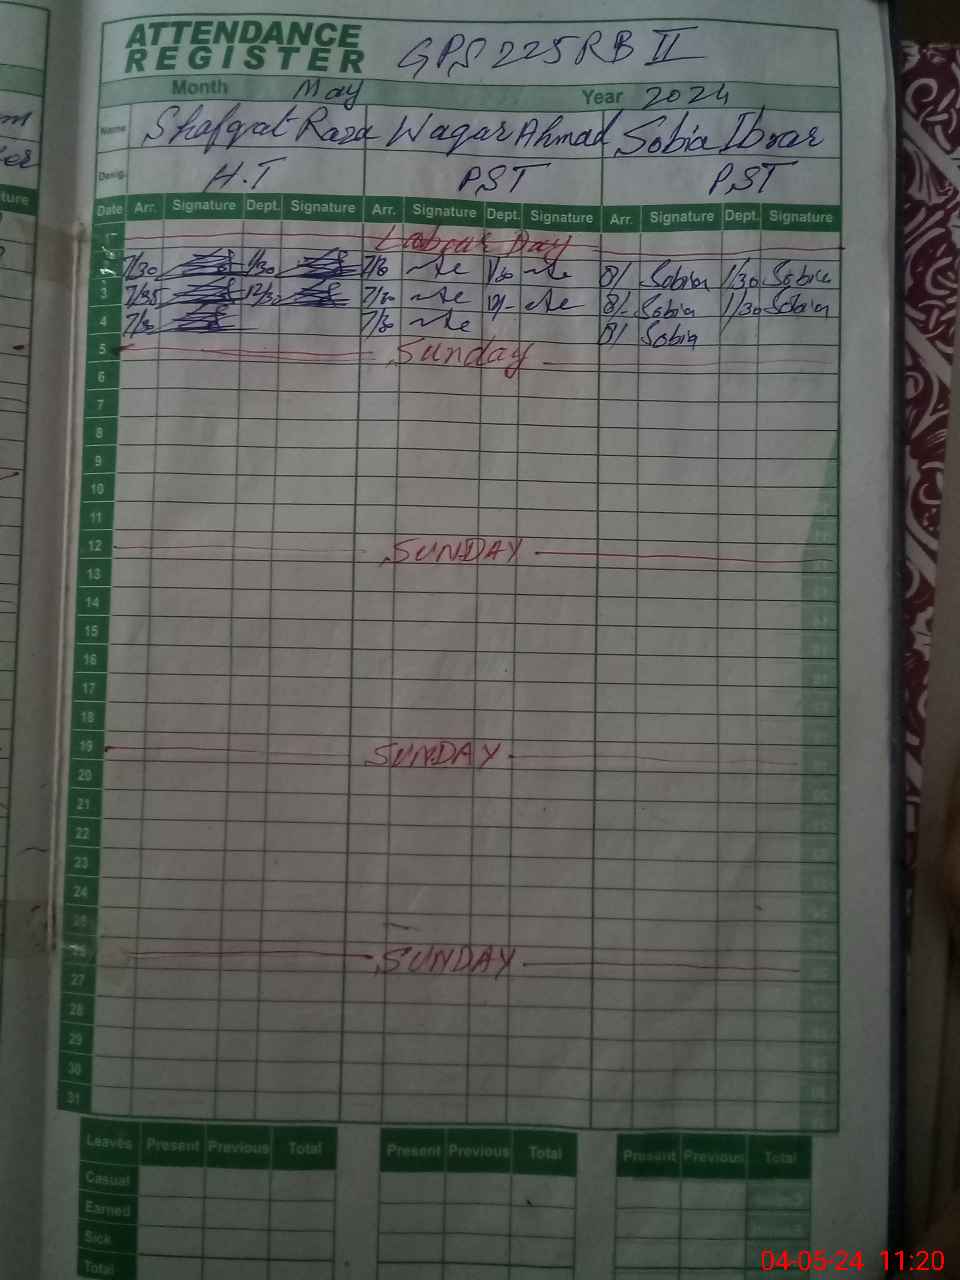 ATTENDANCE
REGISTER GPS 225 RB II
Month May Year 2024
Name Shafqat Raza Waqar Ahmad Sobia Ibrar
Desig. H.T PST PST
Date Arr. Signature Dept. Signature Arr. Signature Dept. Signature Arr. Signature Dept. Signature
Labour Day
7/30 1/30 7/30 1/30 8/- Sobia 1/30 Sobia
3 7/35 12/30 7/30 12/- 8/- Sobia 1/30 Sobia
4 7/30 7/30 8/ Sobia
5 Sunday
6
7
8
9
10
11
12 SUNDAY
13
14
15
16
17
18
19 SUNDAY
20
21
22
23
24
25
26 SUNDAY
27
28
29
30
31
Leaves Present Previous Total Present Previous Total Present Previous Total
Casual
Earned
Sick
Total
04-05-24 11:20